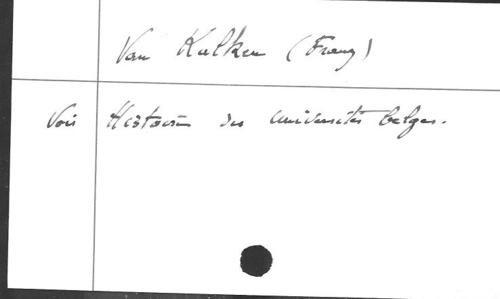 Van Kalken (Franz)
Voir Histoire des universités belges.